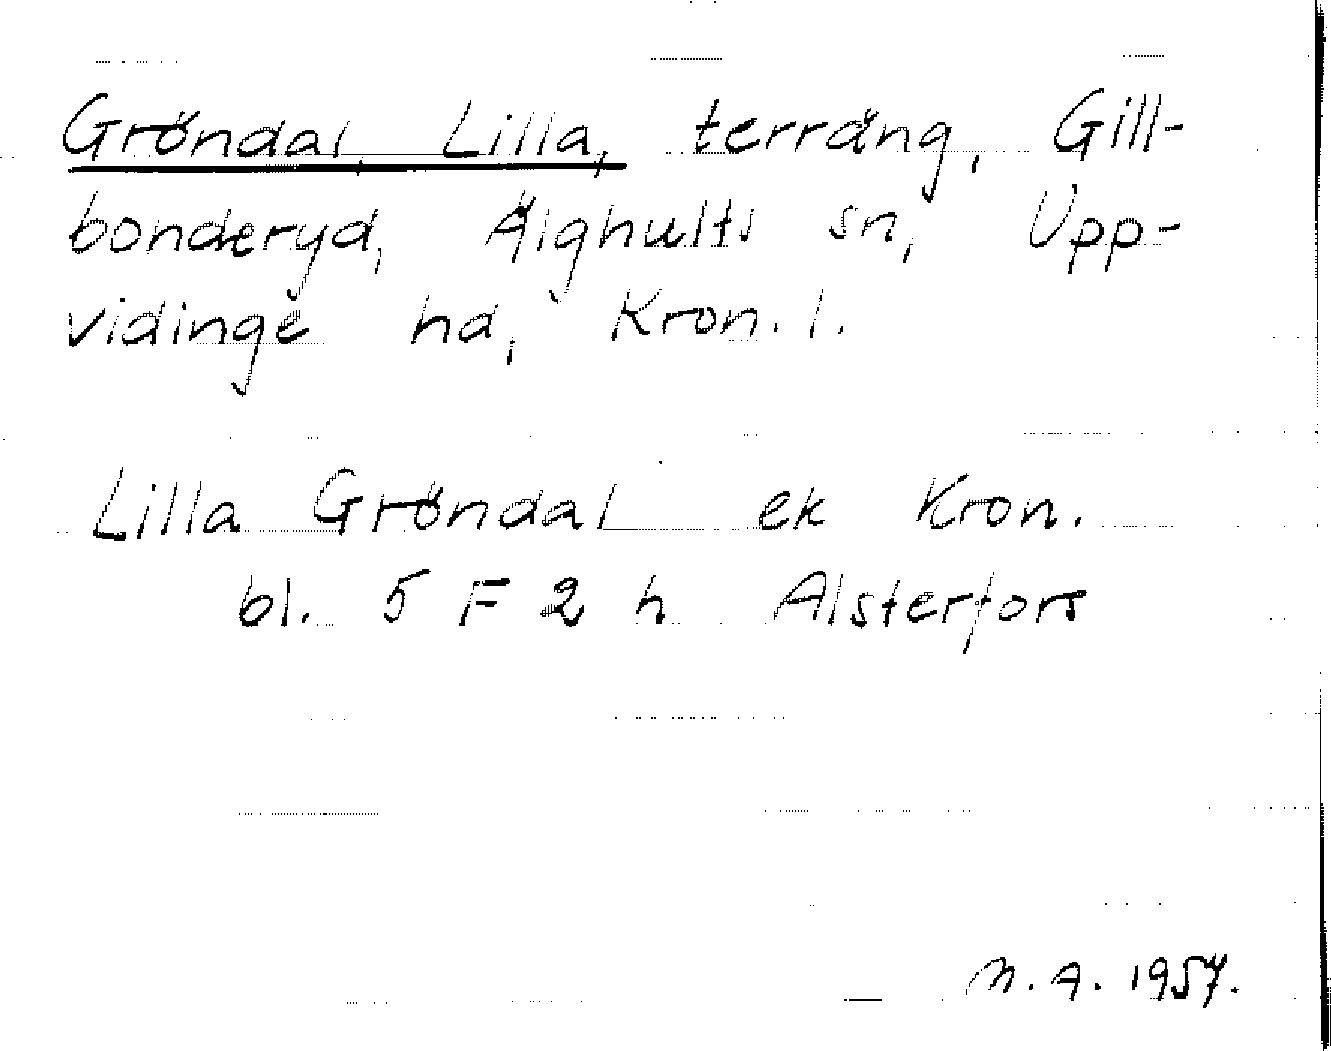 Gröndal, Lilla, terräng, Gill-
bonderyd, Älghults sn, Upp-
vidinge hd, Kron. l.
Lilla Gröndal ek Kron.
bl. 5 F 2 h Alsterfors
N. A. 1957.